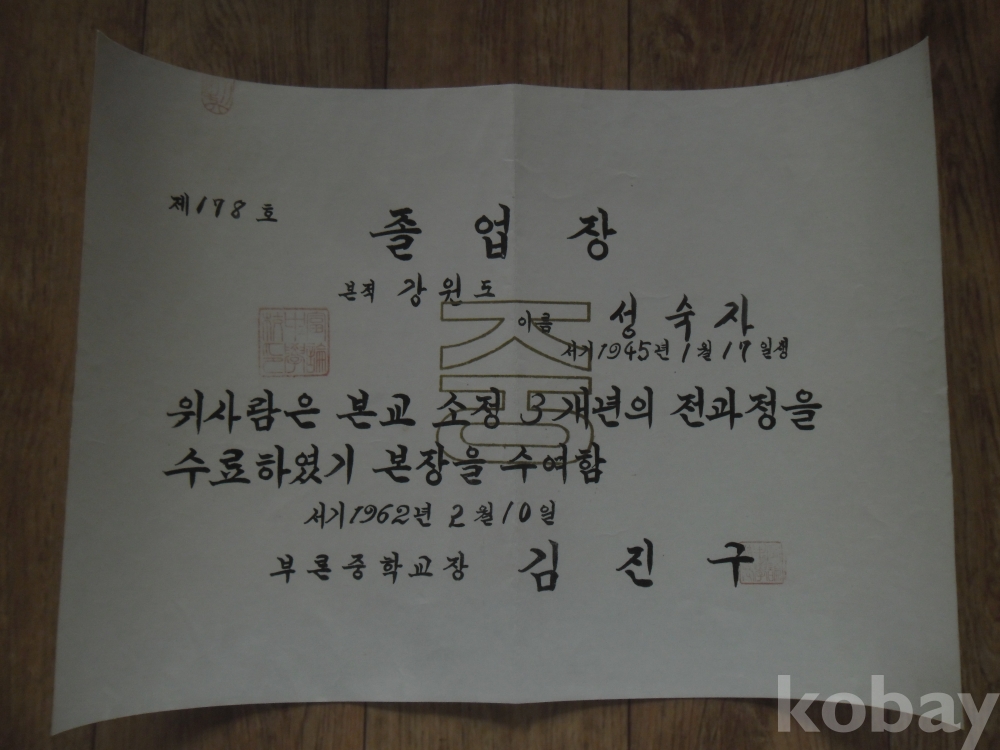 제178호
졸업장
본적 강원도
이름 성숙자
서기1945년 1월 17일생
중
위사람은 본교 소정 3개년의 전과정을
수료하였기 본장을 수여함
서기1962년 2월10일
부론중학교장 김진구
kobay